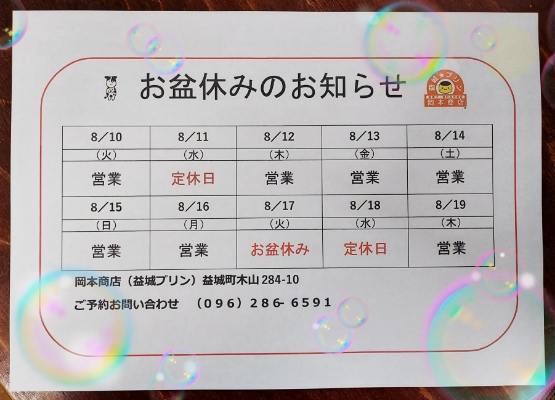 お盆休みのお知らせ
益城★プリン
岡本商店
8/10 8/11 8/12 8/13 8/14
(火) (水) (木) (金) (土)
営業 定休日 営業 営業 営業
8/15 8/16 8/17 8/18 8/19
(日) (月) (火) (水) (木)
営業 営業 お盆休み 定休日 営業
岡本商店（益城プリン）益城町木山284-10
ご予約お問い合わせ （０９６）２８６-６５９１